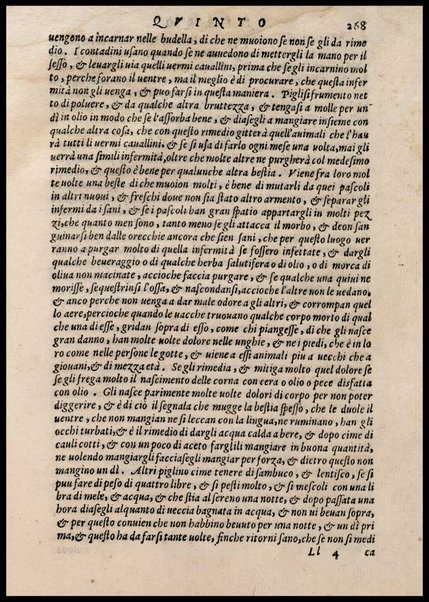 QVINTO 268
uengono a incarnar nelle budella, di che ne muoiono se non se gli da rime
dio. I contadini usano quando se ne auuedono di mettergli la mano per il
sesso, & leuargli uia quelli uermi cauallini, prima che se gli incarnino mol
to, perche forano il uentre, ma il meglio è di procurare, che questa infer
mità non gli uenga, & puo farsi in questa maniera. Piglisi frumento net
to di poluere, & da qualche altra bruttezza, & tengasi a molle per un
dì in olio in modo che se l'assorba bene, & diasegli a mangiare insieme con
qualche altra cosa, che con questo rimedio gitterà quell'animali che l'hau
rà tutti li uermi cauallini, & se si usa di farlo ogni mese una uolta, mai gli
uerrà una simili infermità, oltre che molte altre ne purgherà col medesimo
rimedio, & questo è bene per qualunche altra bestia. Viene fra loro mol
te uolte una beste di che muoion molti, è bene di mutarli da quei pascoli
in altri nuoui, & freschi doue non sia stato altro armento, & separar gli
infermi da i sani, & se i pascoli han gran spatio appartargli in molti pez
zi, che quanto men sono, tanto meno se gli attacca il morbo, & deon san
guinarsi ben dalle orecchie ancora che sien sani, che per questo luogo uer
ranno a purgar molto di quella infermità se fossero infettate, & dargli
qualche beueraggio o di qualche herba salutifera o di olio, o di morca di
oliua non macinate, accioche faccia purgare, & se qualche una quiui ne
morisse, sequestrinsi l'ossa, & nascondansi, accioche l'altre non le uedano,
& anco perche non uenga a dar male odore a gli altri, & corrompan quel
lo aere, percioche quando le uacche truouano qualche corpo morto di qual
che una di esse, gridan sopra di esso, come chi piangesse, di che gli nasce
gran danno, han molte uolte dolore nelle unghie, & ne i piedi, che è in lo
ro come nelle persone le gotte, & uiene a essi animali piu a uecchi che a
giouani, & di mezza età. Se gli rimedia, & mitiga molto quel dolore se
se gli frega molto il nascimento delle corna con cera o olio o pece disfatta
con olio. Gli nasce parimente molte uolte dolori di corpo per non poter
diggerire, & è di ciò il segnala che mugge la bestia spesso, che le duole il
uentre, che non mangian ne si leccan con la lingua, ne ruminano, han gli
occhi turbati, & è il rimedio di dargli acqua calda a bere, & dopo cime di
cauli cotti, & con un poco di aceto fargli li mangiare in buona quantità,
ne uolendo mangiargli facciasegli mangiar per forza, & dietro questo non
mangino un dì. Altri piglino cime tenere di sambuco, & lentisco, se si
puu fare di peso di quattro libre, & si pesti molto, & si mescoli con una li
bra di mele, & acqua, & che stia al sereno una notte, & dopo passata una
hora diasegli alquanto di ueccia bagnata in acqua, & non ui beuan sopra,
& per questo conuien che non habbino beuuto per una notte, & un dì pri
ma, & questo ha da farsi tante uolte, finche ritorni sano, che se non si medi
Ll 4 ca